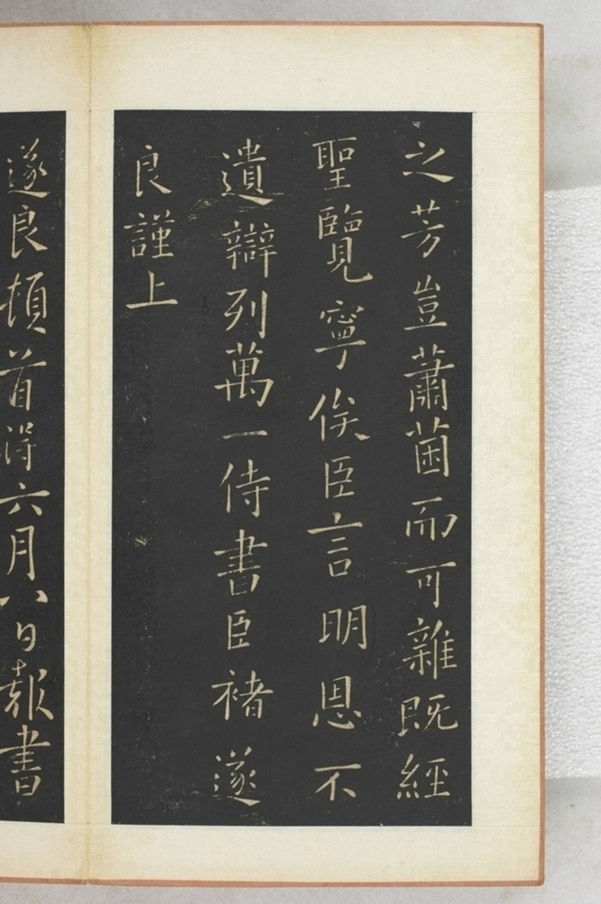 之芳豈蕭茵而可雜既經
聖覽寧俟臣言明恩不
遺辯列萬一侍書臣褚遂
良謹上
遂良頓首得六月八日報書